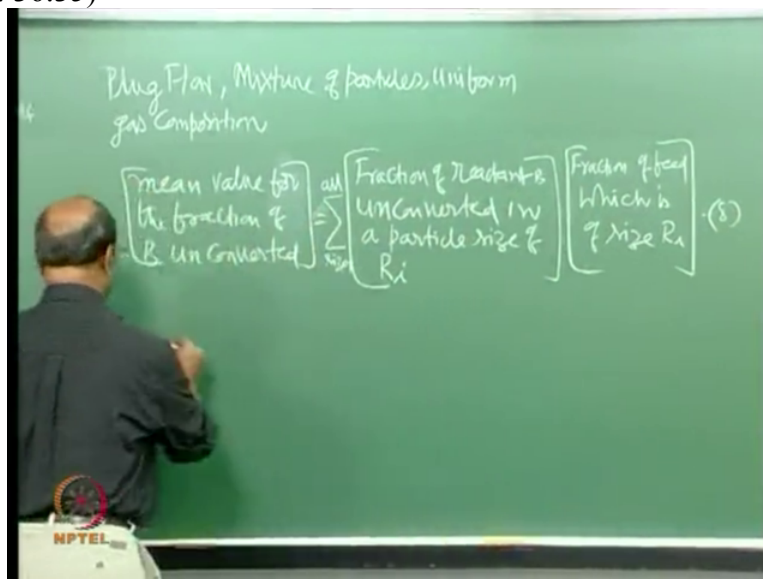 Plug Flow, Mixture of particles, Uniform
gas Composition
mean value for
the fraction of
B unconverted
=
all
∑
sizes
Fraction of reactant B
unconverted in
a particle size of
Ri
Fraction of feed
which is
of size Ri
-(8)
NPTEL